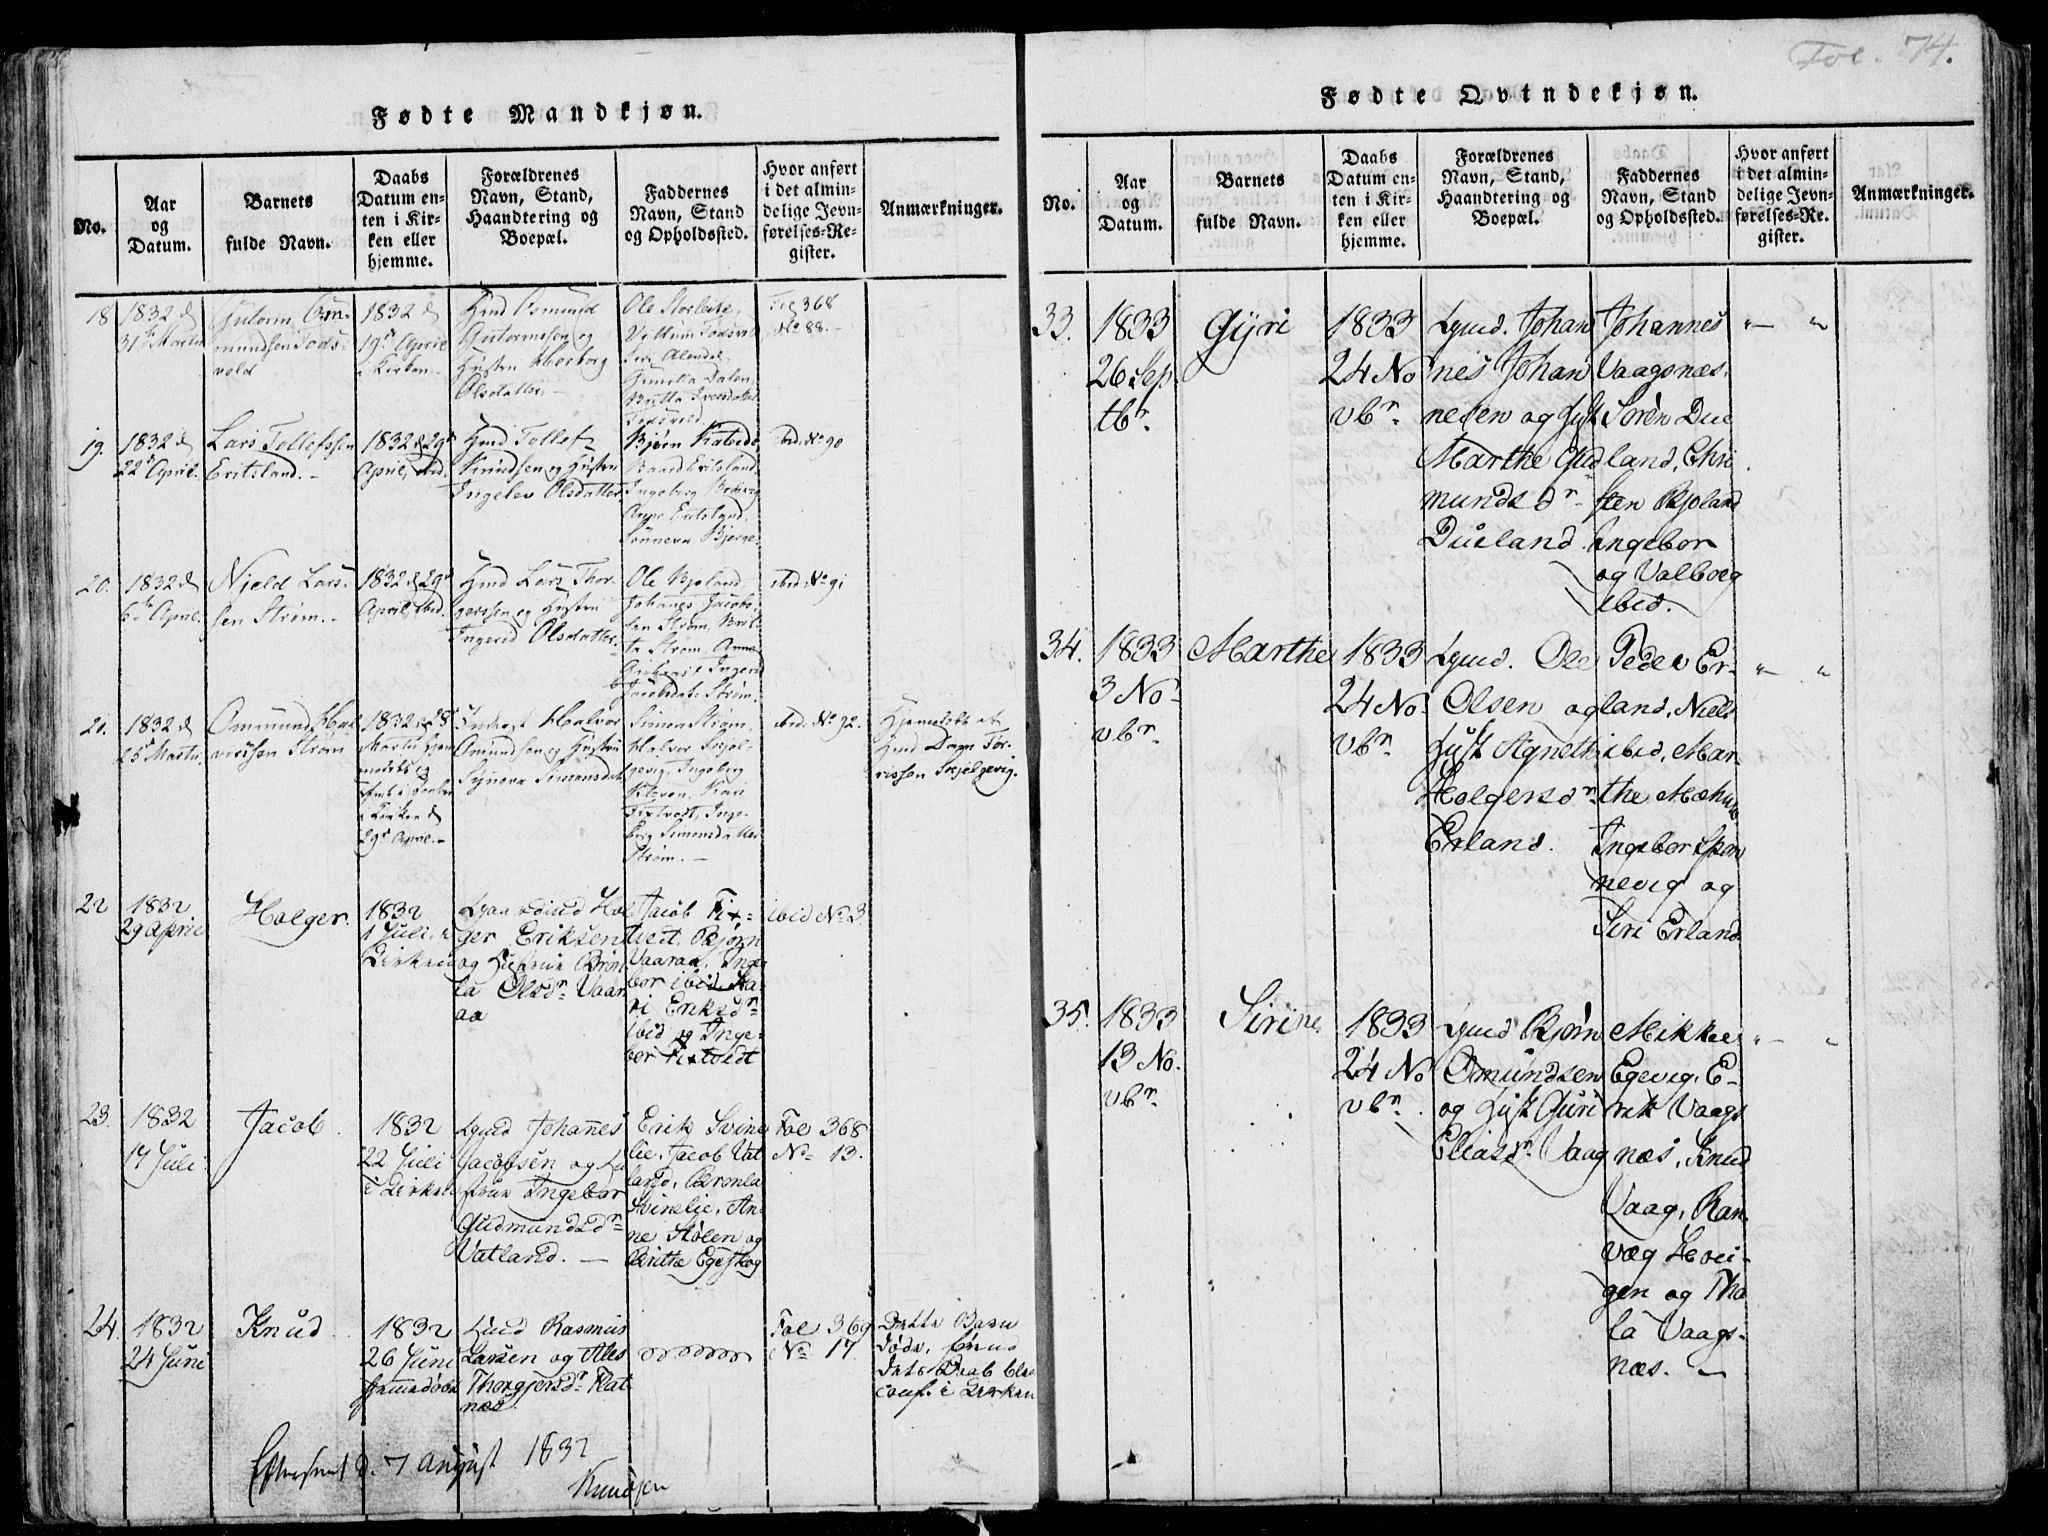 Fødte Mandkjøn.
No.
Aar
og
Datum.
Barnets
fulde Navn.
Daabs
Datum en-
ten i Kir-
ken eller
hjemme.
Forældrenes
Navn, Stand,
Haandtering og
Boepæl.
Faddernes
Navn, Stand
og Opholdssted.
Hvor anført
i det almin-
delige Jevn-
førelses-Re-
gister.
Anmærkninger.
18
1832 d
31 Martii
Guttorm Om-
mundsen Tods-
vold
1832 d
19d April
i Kirken
Gmd Omund
Guttormsen og
Hustru Herborg
Olsdatter.
Ole Storleite,
Villum Todsvol
Siri Alendal,
Gunilla Dalen,
Britta Iversdatter
Todsvold.
Fol 368
No 88.
19.
1832 d
22d April.
Lars Tollefssen
Eritsland.
1832 d 29d
April, ibid.
Gmd Tollef
Knudsen og Hustru
Ingelev Olsdatter
Bjørn
Baard Eritsland,
Ingeborg
Anna Eritsland,
Sønneva Bjerge.
ibid. No 90
20.
1832 d
6te April.
Njeld Lars-
sen Strøm.
1832 d 29d
April, ibid.
Gmd Lars Thor-
gerssen og Hustru
Ingerid Olsdatter.
Ole Bjoland,
Johanes Jacob-
sen Strøm, Brit-
ta Strøm, Anne
Ingerid
Jacobsdatr Strøm.
ibid No 91
21.
1832 d
25 Martii,
Ommund Hal-
vorssen Strøm
1832 d 28
Martii hjem-
medøbt og
i Kirken d
29d April.
Halvor
Omundsen og Hustru
Synnova Simonsdatr
Simon Strøm,
Halvor Skjel-
gevig, Ingeborg
Kleven, Kari
Fixtvedt, Inge-
borg Simonsdatter
Strøm.
ibid. No 92.
Hjemedøbt af
Gmd Dagn Tor-
rissen Skjelgevig.
22
1832
29 April
Holger.
1832
1 Juli, i
Kirken
Gaardmd Hol
ger Eriksen
og Hustrue Brøn
la Olsdr Vaar
aa
Jacob Fix-
tvedt. Bjørn
Vaaraa, Inge
bor ibid, Ka-
ri Eriksdr
ibid og Inge-
bor Fixtvedt
ibid No 3.
23.
1832
17 Juli
Jacob.
1832
22 Juli
i Kirken
Gmd Johannes
Jacobsen og Hu
strue Ingebor
Gudmundsdr
Vatland.
Erik Svine
lie, Jacob Vat
land, Bronla
Svinelie, An-
ne Stølen og
Brithe Egeskog
Fol 368
No 13.
24.
1832
24 Juni
Knud
1832
26 Juni
hjemedøbt
Gmd Rasmus
Larsen og Ales
Thorgjersdr Flat
næs.
Fol 369
No 17.
Dette Barn
døde, førend
dets Daab blev
conf. i Kirken
Efterseet d. 7 August 1832
Knudsen
Fol. 74.
Fødte Qvindekjøn.
No.
Aar
og
Datum.
Barnets
fulde Navn.
Daabs
Datum en-
ten i Kir-
ken eller
hjemme.
Forældrenes
Navn, Stand,
Haandtering og
Boepæl.
Faddernes
Navn, Stand
og Opholdssted.
Hvor anført
i det almin-
delige Jevn-
førelses-Re-
gister.
Anmærkninger.
33.
1833
26 Sep
tbr.
Gyri
1833
24 No
vbr.
Gmd. Johan
nes Johan
nesen og Hust
Marthe Gud
mundsdr
Dueland.
Johannes
Vaagsnæs.
Søren Due
land, Chri
sten Bjoland
Ingebor
og Valborg
ibid.
" — "
34.
1833
3 No-
vbr.
Marthe
1833
24 No-
vbr.
Gmd. Ole
Olsen og
Hust Agnethe
Holgersdr
Erland.
Peder Er-
land, Niels
ibid, Mar-
the
Ingebor Spon
nevig og
Siri Erland.
" — "
35.
1833
13 No-
vbr.
Sirine
1833
24 No
vbr.
Gmd Bjørn
Omundsen
og Hust Guri
Eliasdr Vaag
Mikkel
Egevig, E-
rik Vaags
næs, Knud
Vaag, Ran-
væg Hovi-
gen og Tho
la Vaags-
næs.
" — "